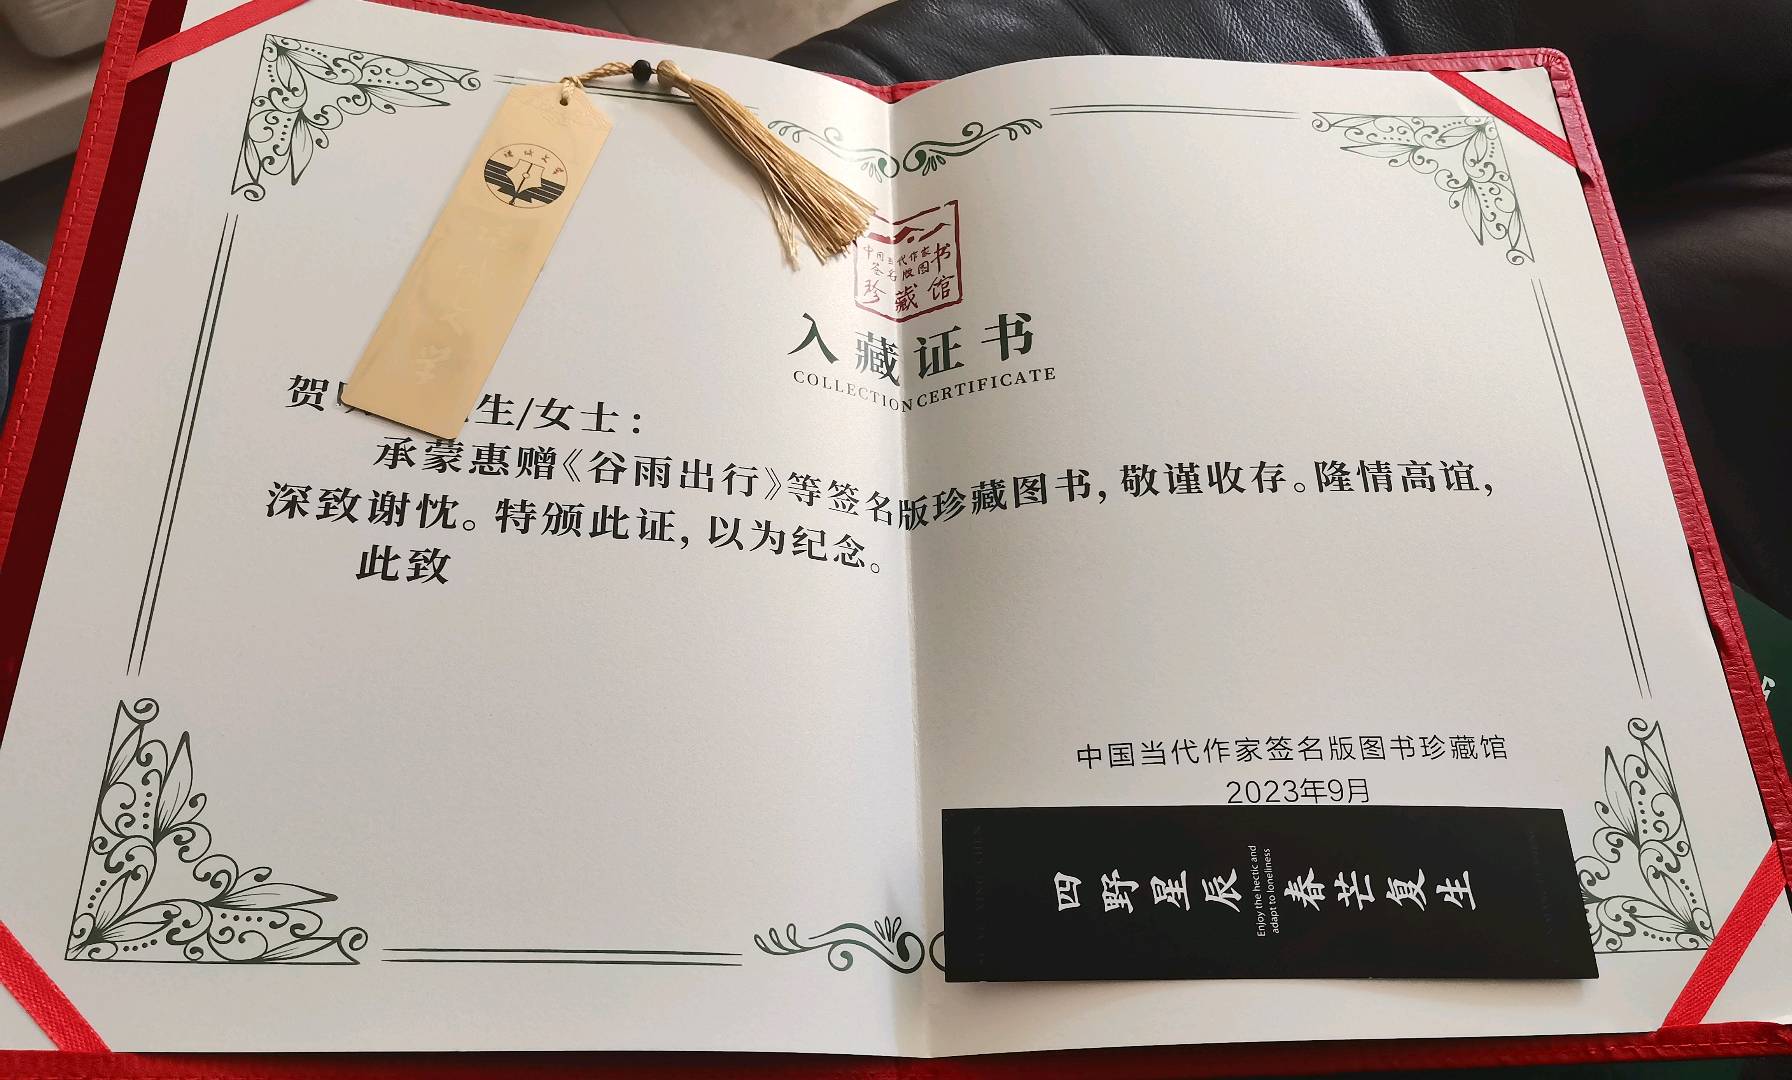 中国当代作家
签名版图书
珍藏馆
入藏证书
COLLECTION CERTIFICATE
贺 生/女士：
承蒙惠赠《谷雨出行》等签名版珍藏图书，敬谨收存。隆情高谊，
深致谢忱。特颁此证，以为纪念。
此致
中国当代作家签名版图书珍藏馆
2023年9月
四野星辰
Enjoy the hectic and
adapt to loneliness
春芒复生